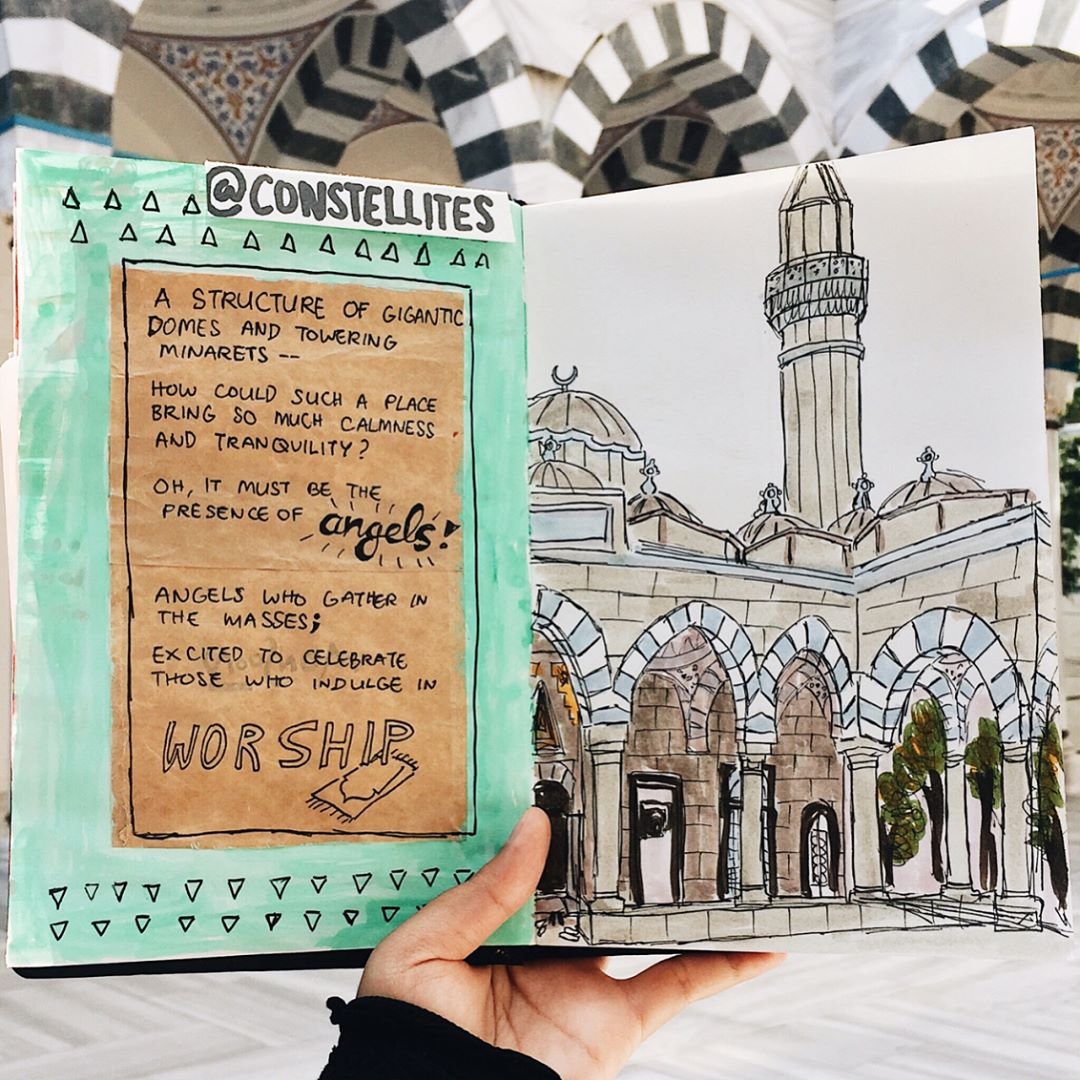 @CONSTELLITES
A STRUCTURE OF GIGANTIC
DOMES AND TOWERING
MINARETS --
HOW COULD SUCH A PLACE
BRING SO MUCH CALMNESS
AND TRANQUILITY?
OH, IT MUST BE THE
PRESENCE OF angels!
ANGELS WHO GATHER IN
THE MASSES;
EXCITED TO CELEBRATE
THOSE WHO INDULGE IN
WORSHIP